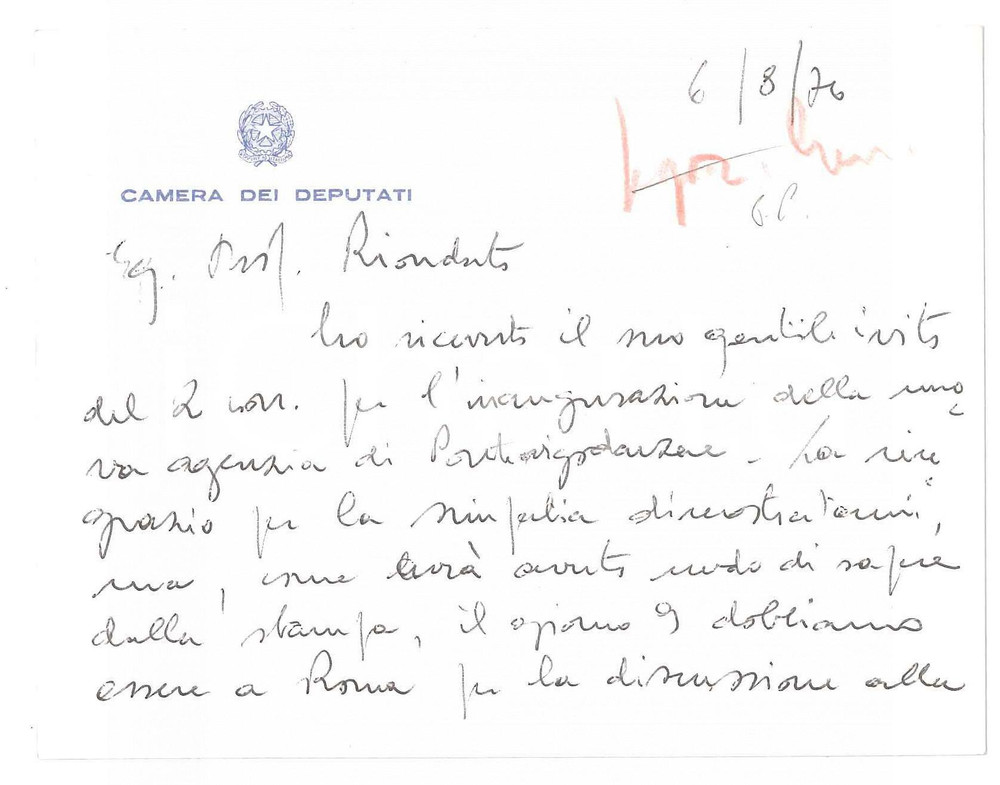 6/8/76
CAMERA DEI DEPUTATI
G.P.
Eg. Prof. Riondato
ho ricevuto il suo gentile invito
del 2 corr. per l'inaugurazione della nuo
va agenzia di Pontevigodarzere - La rin
grazio per la simpatia dimostratami,
ma, come avrà avuto modo di sapere
dalla stampa, il giorno 9 dobbiamo
essere a Roma per la discussione alla